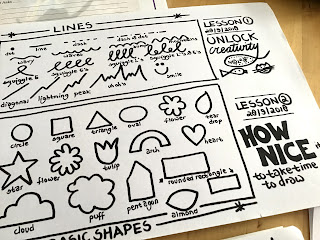 LINES
dot line dash dash dot
wavy squiggle e's squiggle
squiggle 6's
diagonal lightning peak smile
circle square triangle oval flower tear drop
star flower tulip arch heart
cloud puff pentagon rounded rectangle's
almond
BASIC SHAPES
LESSON 1
28/9/2018
UNLOCK
creativity
LESSON 2
28/9/2018
HOW
NICE it
to take time
to draw